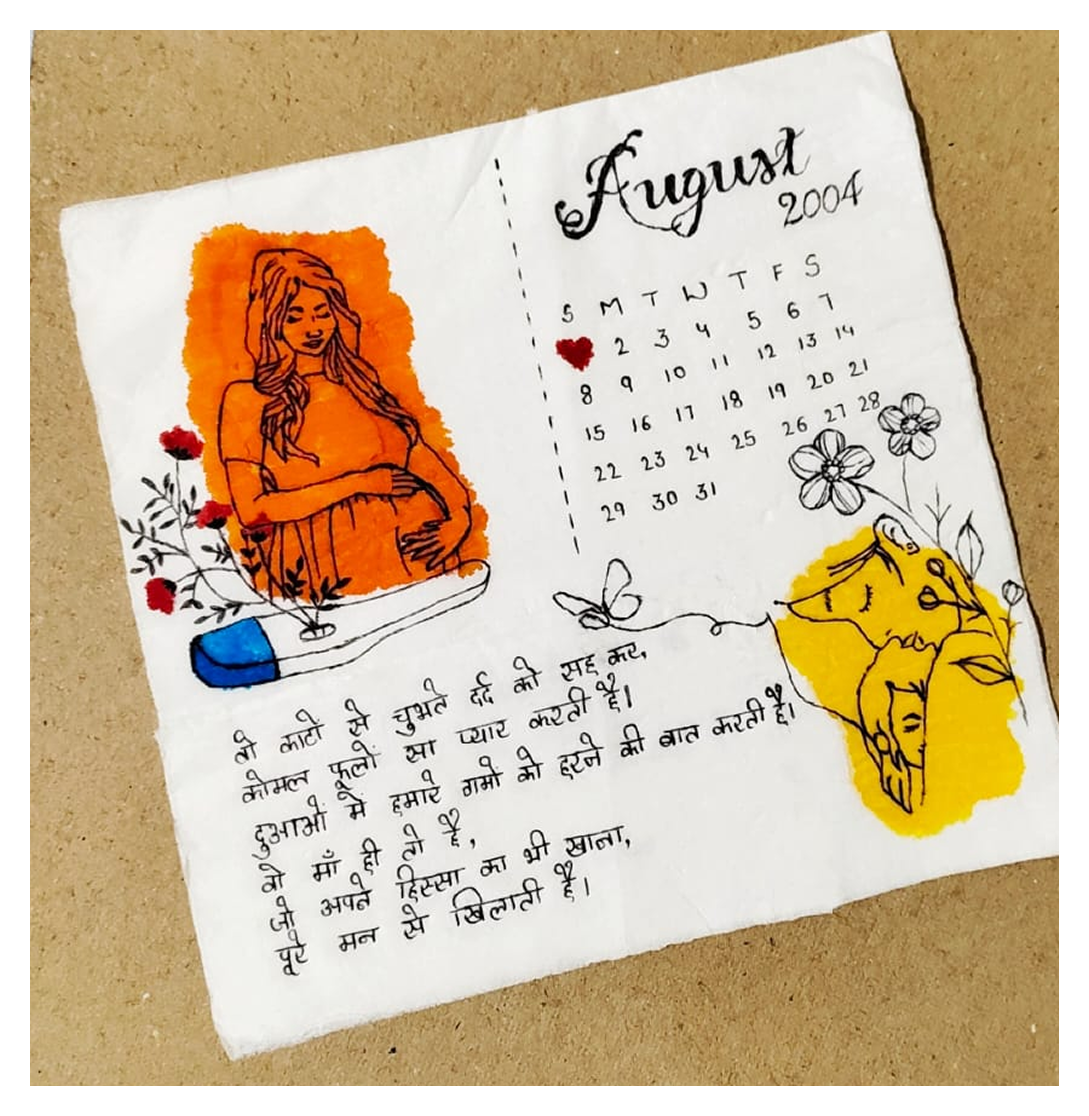 August
2004
S M T W T F S
2 3 4 5 6 7
8 9 10 11 12 13 14
15 16 17 18 19 20 21
22 23 24 25 26 27 28
29 30 31
वो काटो से चुभते दर्द को सह कर,
कोमल फूलों सा प्यार करती है।
दुआओं में हमारे गमों को हरने की बात करती है।
वो माँ ही तो है,
जो अपने हिस्सा का भी खाना,
पूरे मन से खिलाती है।